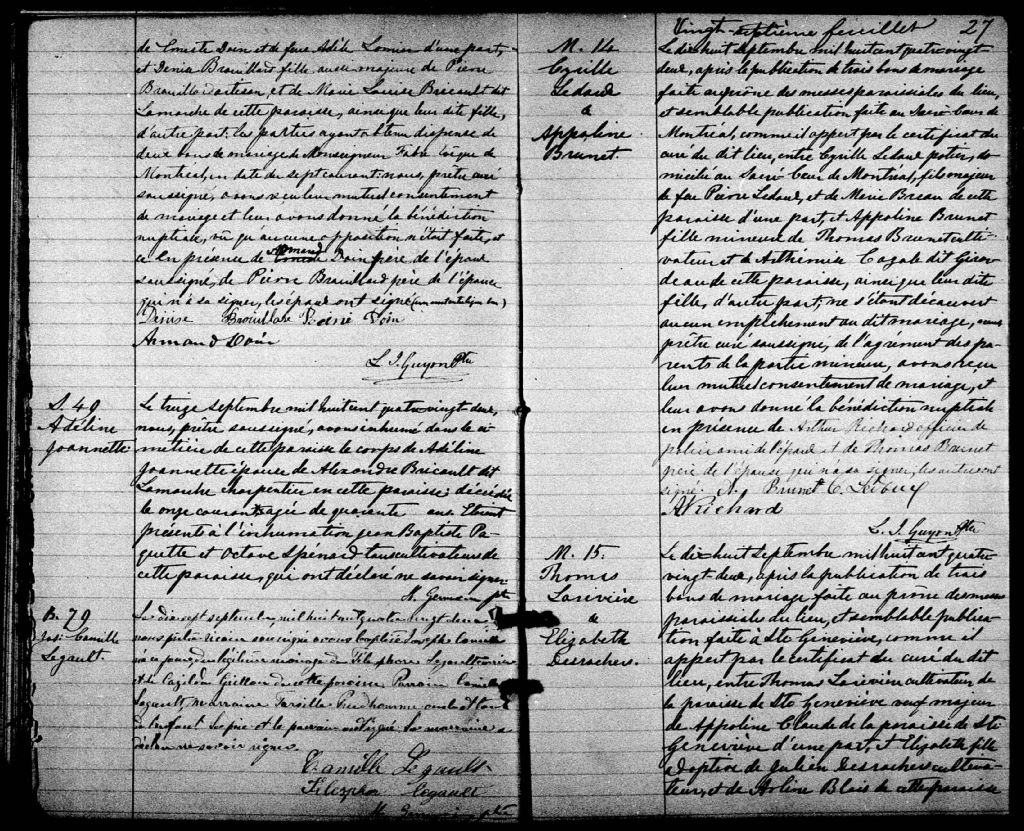 de Ernest Doin et de feue Adèle Lomier d'une part,
et Denise Brouillard fille aussi majeure de Pierre
Brouillard artisan, et de Marie Louise Bricault dit
Lamarche de cette paroisse, ainsi que leur dite fille,
d'autre part: les parties ayant obtenu dispense de
deux bans de mariage de Monseigneur Fabre Evêque de
Montréal, en date du sept courant: nous, prêtre curé
soussigné, avons reçu leur mutuel consentement
de mariage et leur avons donné la bénédiction
nuptiale, vu qu'aucune opposition n'était faite, et
ce en présence de Armand Doin père de l'époux
soussigné, de Pierre Brouillard père de l'épouse
qui n'a su signer, les époux ont signé
Denise Brouillard Doin
Armand Doin
L. J. Guyon Ptre
S. 49
Adéline
Joannette
Le treize septembre mil huit cent quatre-vingt deux,
nous, prêtre soussigné, avons inhumé dans le ci-
metière de cette paroisse le corps de Adéline
Joannette épouse de Alexandre Bricault dit
Lamarche charpentier en cette paroisse: décédée
le onze courant, agée de quarante ans. Etaient
présents à l'inhumation Jean Baptiste Pa-
quette et Octave Spénard tous cultivateurs de
cette paroisse, qui ont déclaré ne savoir signer.
A. Germain ptre
B. 79
Jos: Camille
Legault.
Le dix sept septembre mil huit cent quatre vingt deux
nous prêtre vicaire soussigné avons baptisé Joseph Camille
né ce jour, du légitime mariage de Télesphore Legault
et de Guillon de cette paroisse. Parrain Camille
Legault, Marraine Prud'homme
de l'enfant. Le père et le parrain ont signé la marraine a
déclaré ne savoir signer
Camille Legault
Télesphore Legault
Vingt-septième feuillet 27
M. 14
Cyrille
Ledoux
&
Appoline
Brunet.
Le dix huit septembre mil huit cent quatre vingt
deux, après la publication de trois bans de mariage
faite au prône des messes paroissiales du lieu,
et semblable publication faite au Sacré-Coeur de
Montréal, comme il appert par le certificat du
curé du dit lieu, entre Cyrille Ledoux potier, do-
micilié au Sacré-Coeur de Montréal, fils majeur
de feu Pierre Ledoux, et de Marie Breau de cette
paroisse d'une part, et Appoline Brunet
fille mineure de Thomas Brunet culti-
vateur et de Arthémise Cazale dit
de cette paroisse, ainsi que leur dite
fille, d'autre part; ne s'étant découvert
aucun empêchement au dit mariage, nous
prêtre curé soussigné, de l'agrément des pa-
rents de la partie mineure, avons reçu
leur mutuel consentement de mariage, et
leur avons donné la bénédiction nuptiale
en présence de Arthur Richard officier de
police ami de l'époux et de Thomas Brunet
père de l'épouse qui n'a su signer, les autres ont
signé. A. Brunet C. Ledoux
A Richard
L. J. Guyon Ptre
M. 15.
Thomas
Larivière
&
Elizabeth
Desrochers.
Le dix-huit septembre mil huit cent quatre
vingt-deux, après la publication de trois
bans de mariage faite au prône des messes
paroissiales du lieu, et semblable publica-
tion faite à Ste Geneviève, comme il
appert par le certificat du curé du dit
lieu, entre Thomas Larivière cultivateur de
la paroisse de Ste Geneviève veuf majeur
de Appoline Claude de la paroisse de Ste
Geneviève d'une part, et Elizabeth fille
adoptive de Julien Desrochers cultiva-
teur, et de Blais de cette paroisse